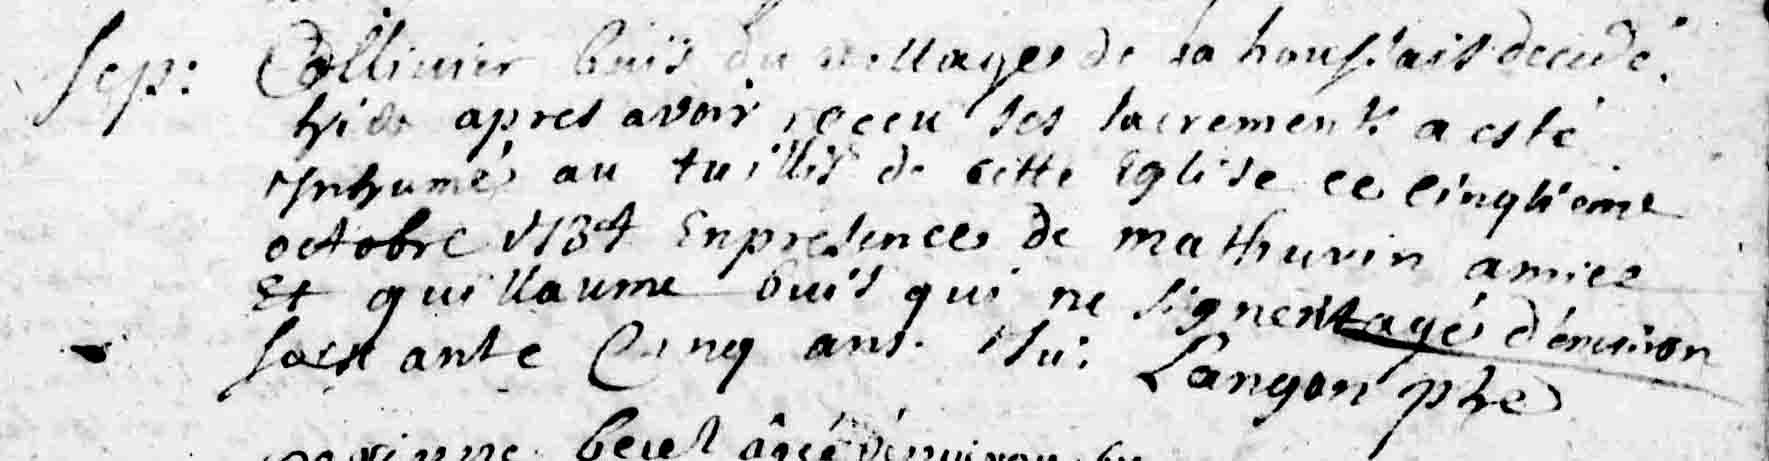 Sep: Ollivier buis du village de la houssais decedé
hier apres avoir receu ses sacrements a esté
ynhumé au tuillis de cette Eglise ce cinqieme
octobre 1734 En presence de mathurin amice
Et guillaume buis qui ne signent agé d'environ
soixante Cinq ans. Langon ptre
perrinne âgée d'environ